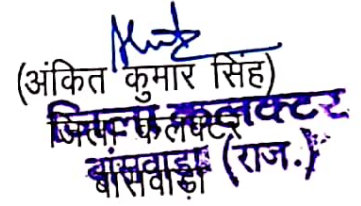 (अंकित कुमार सिंह)
जिला कलक्टर
जिला कलेक्टर
बांसवाड़ा (राज.)
बांसवाड़ा